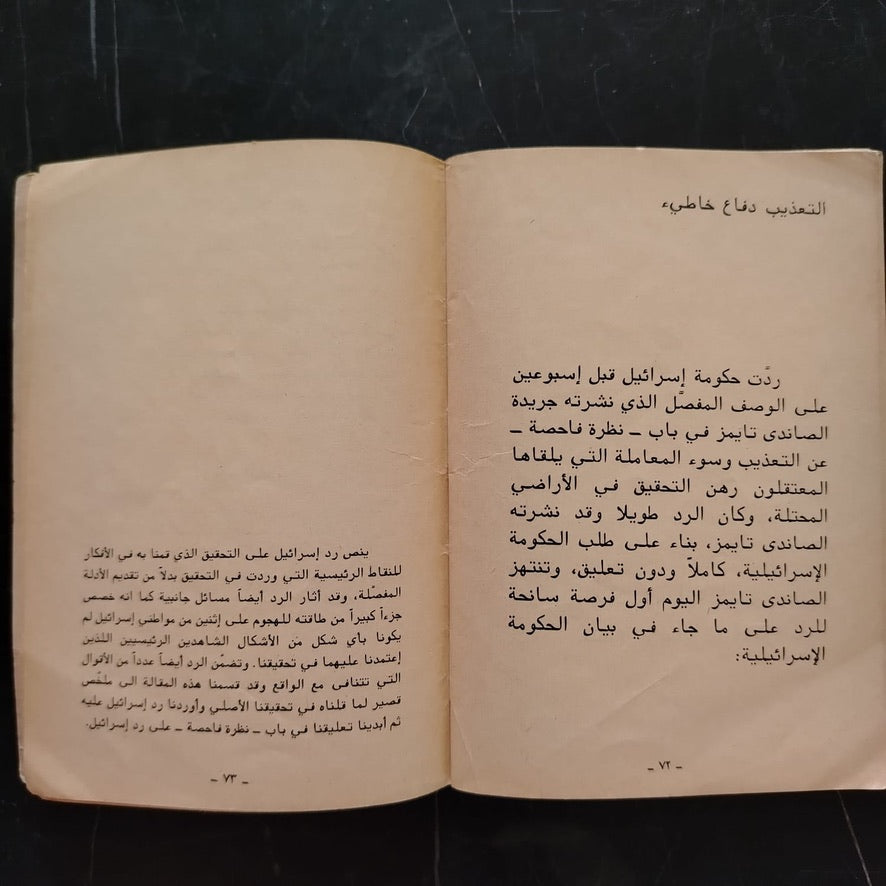 التعذيب دفاع خاطيء
ردَّت حكومة إسرائيل قبل إسبوعين
على الوصف المفصَّل الذي نشرته جريدة
الصاندى تايمز في باب ــ نظرة فاحصة ــ
عن التعذيب وسوء المعاملة التي يلقاها
المعتقلون رهن التحقيق في الأراضي
المحتلة، وكان الرد طويلا وقد نشرته
الصاندى تايمز، بناء على طلب الحكومة
الإسرائيلية، كاملاً ودون تعليق، وتنتهز
الصاندى تايمز اليوم أول فرصة سانحة
للرد على ما جاء في بيان الحكومة
الإسرائيلية:
ــ ٧٢ ــ
ينص رد إسرائيل على التحقيق الذي قمنا به في الأفكار
للنقاط الرئيسية التي وردت في التحقيق بدلاً من تقديم الأدلة
المفصّلة، وقد أثار الرد أيضاً مسائل جانبية كما انه خصص
جزءاً كبيراً من طاقته للهجوم على إثنين من مواطني إسرائيل لم
يكونا بأي شكل من الأشكال الشاهدين الرئيسيين اللذين
إعتمدنا عليهما في تحقيقنا. وتضمَّن الرد أيضاً عدداً من الأقوال
التي تتنافى مع الواقع وقد قسمنا هذه المقالة الى ملخّص
قصير لما قلناه في تحقيقنا الأصلي وأوردنا رد إسرائيل عليه
ثم أبدينا تعليقنا في باب ــ نظرة فاحصة ــ على رد إسرائيل.
ــ ٧٣ ــ